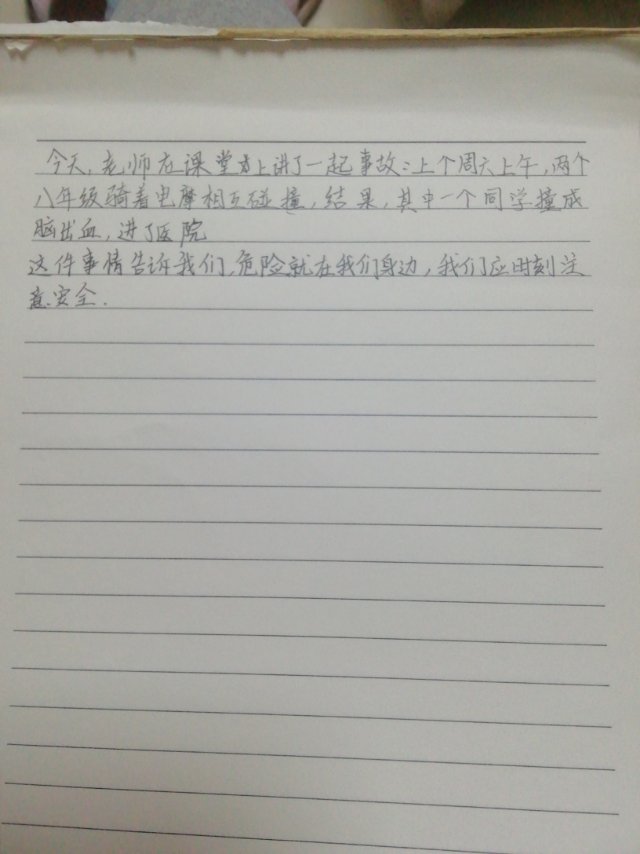 今天,老师在课堂上讲了一起事故:上个周六上午,两个
八年级骑着电摩相互碰撞,结果,其中一个同学撞成
脑出血,进了医院
这件事情告诉我们,危险就在我们身边,我们应时刻注
意安全.